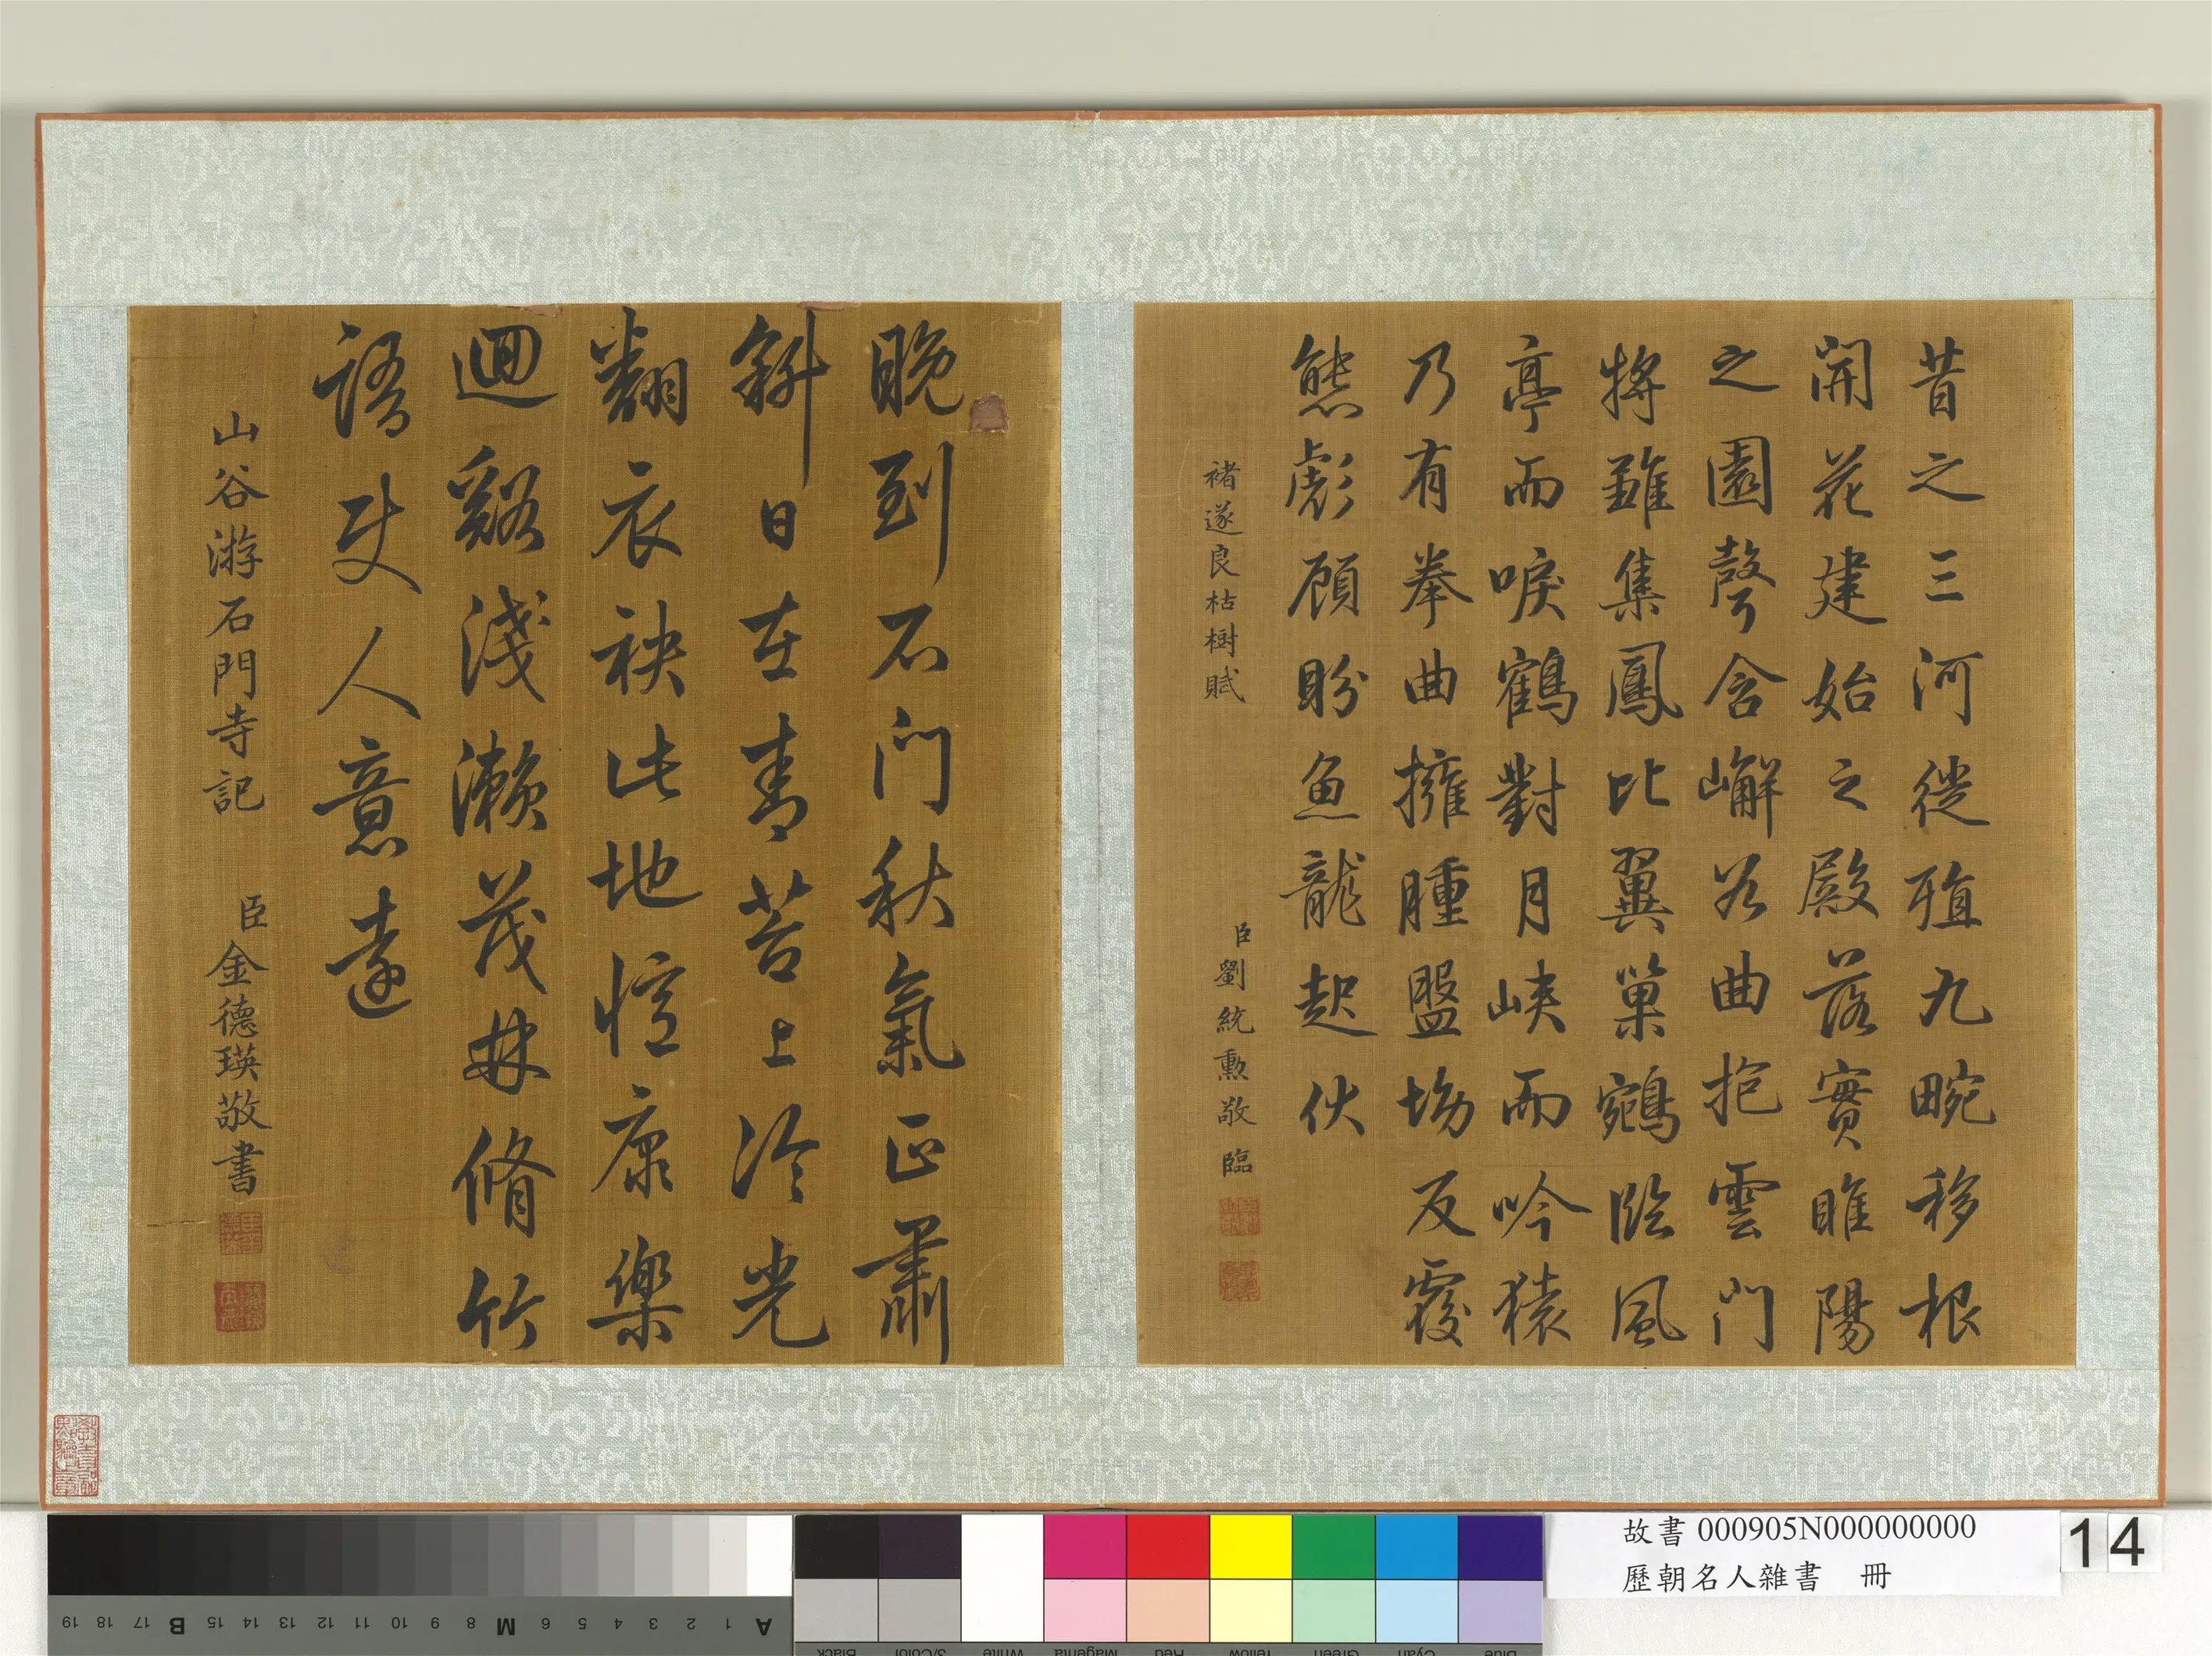 昔之三河徙殖九畹移根
開花建始之殿落實睢陽
之園聲含嶰谷曲抱雲門
將雖集鳳比翼巢鵷臨風
亭而唳鶴對月峽而吟猿
乃有拳曲擁腫盤坳反覆
熊彪顧盼魚龍起伏
褚遂良枯樹賦
臣劉統勳敬臨
晚到石門秋氣正肅
斜日在青苔上冷光
翻衣袂此地惟康樂
迴谿淺瀨茂林脩竹
語使人意遠
山谷游石門寺記
臣金德瑛敬書
故書000905N000000000
歷朝名人雜書 冊
14
19 18 17 B 15 14 13 12 11 10 9 8 M 6 5 4 3 2 1 A
Black 3/Color White Magenta Red Yellow Green Cyan Blue